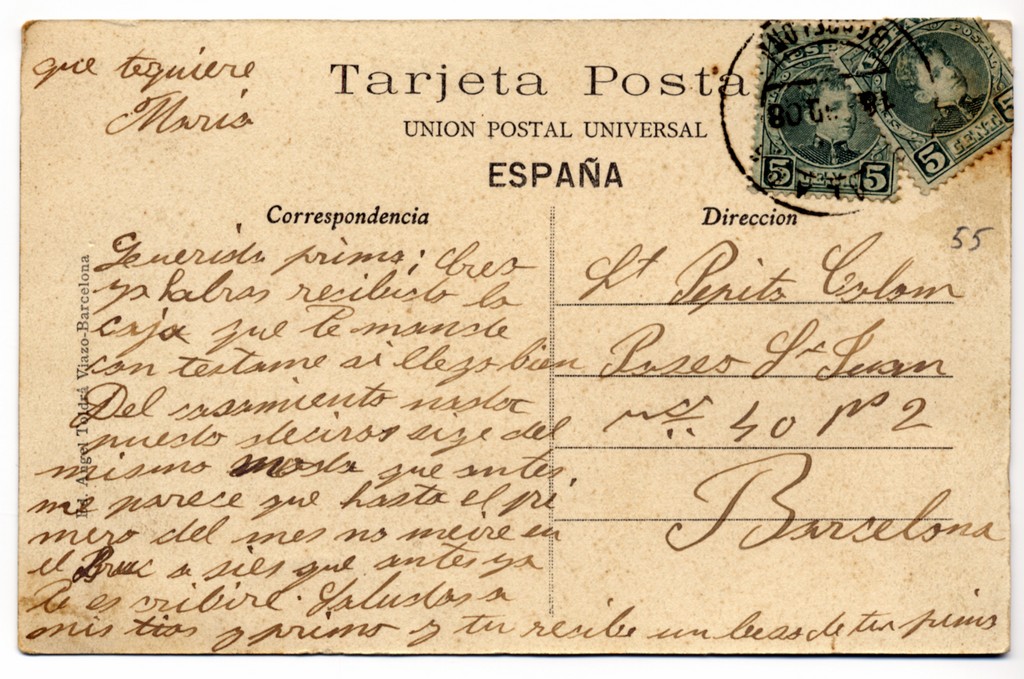 que te quiere
Maria
Tarjeta Posta
UNION POSTAL UNIVERSAL
ESPAÑA
Correspondencia
Direccion
55
5 5
5
Querida prima: Creo
ya habras recibido la
caja que te mande
contestame si llego bien
Del casamiento nada
puedo deciros sige del
mismo modo que antes
me parece que hasta el pri
mero del mes no meire en
el Bruc a sies que antes ya
te es cribire. Saludas a
mis tios y primo y tu recibe un beso de tu prima
Pepita Colom
Paseo Sn Juan
40 2
Barcelona
Ed. Angel Toldrá Viazo-Barcelona